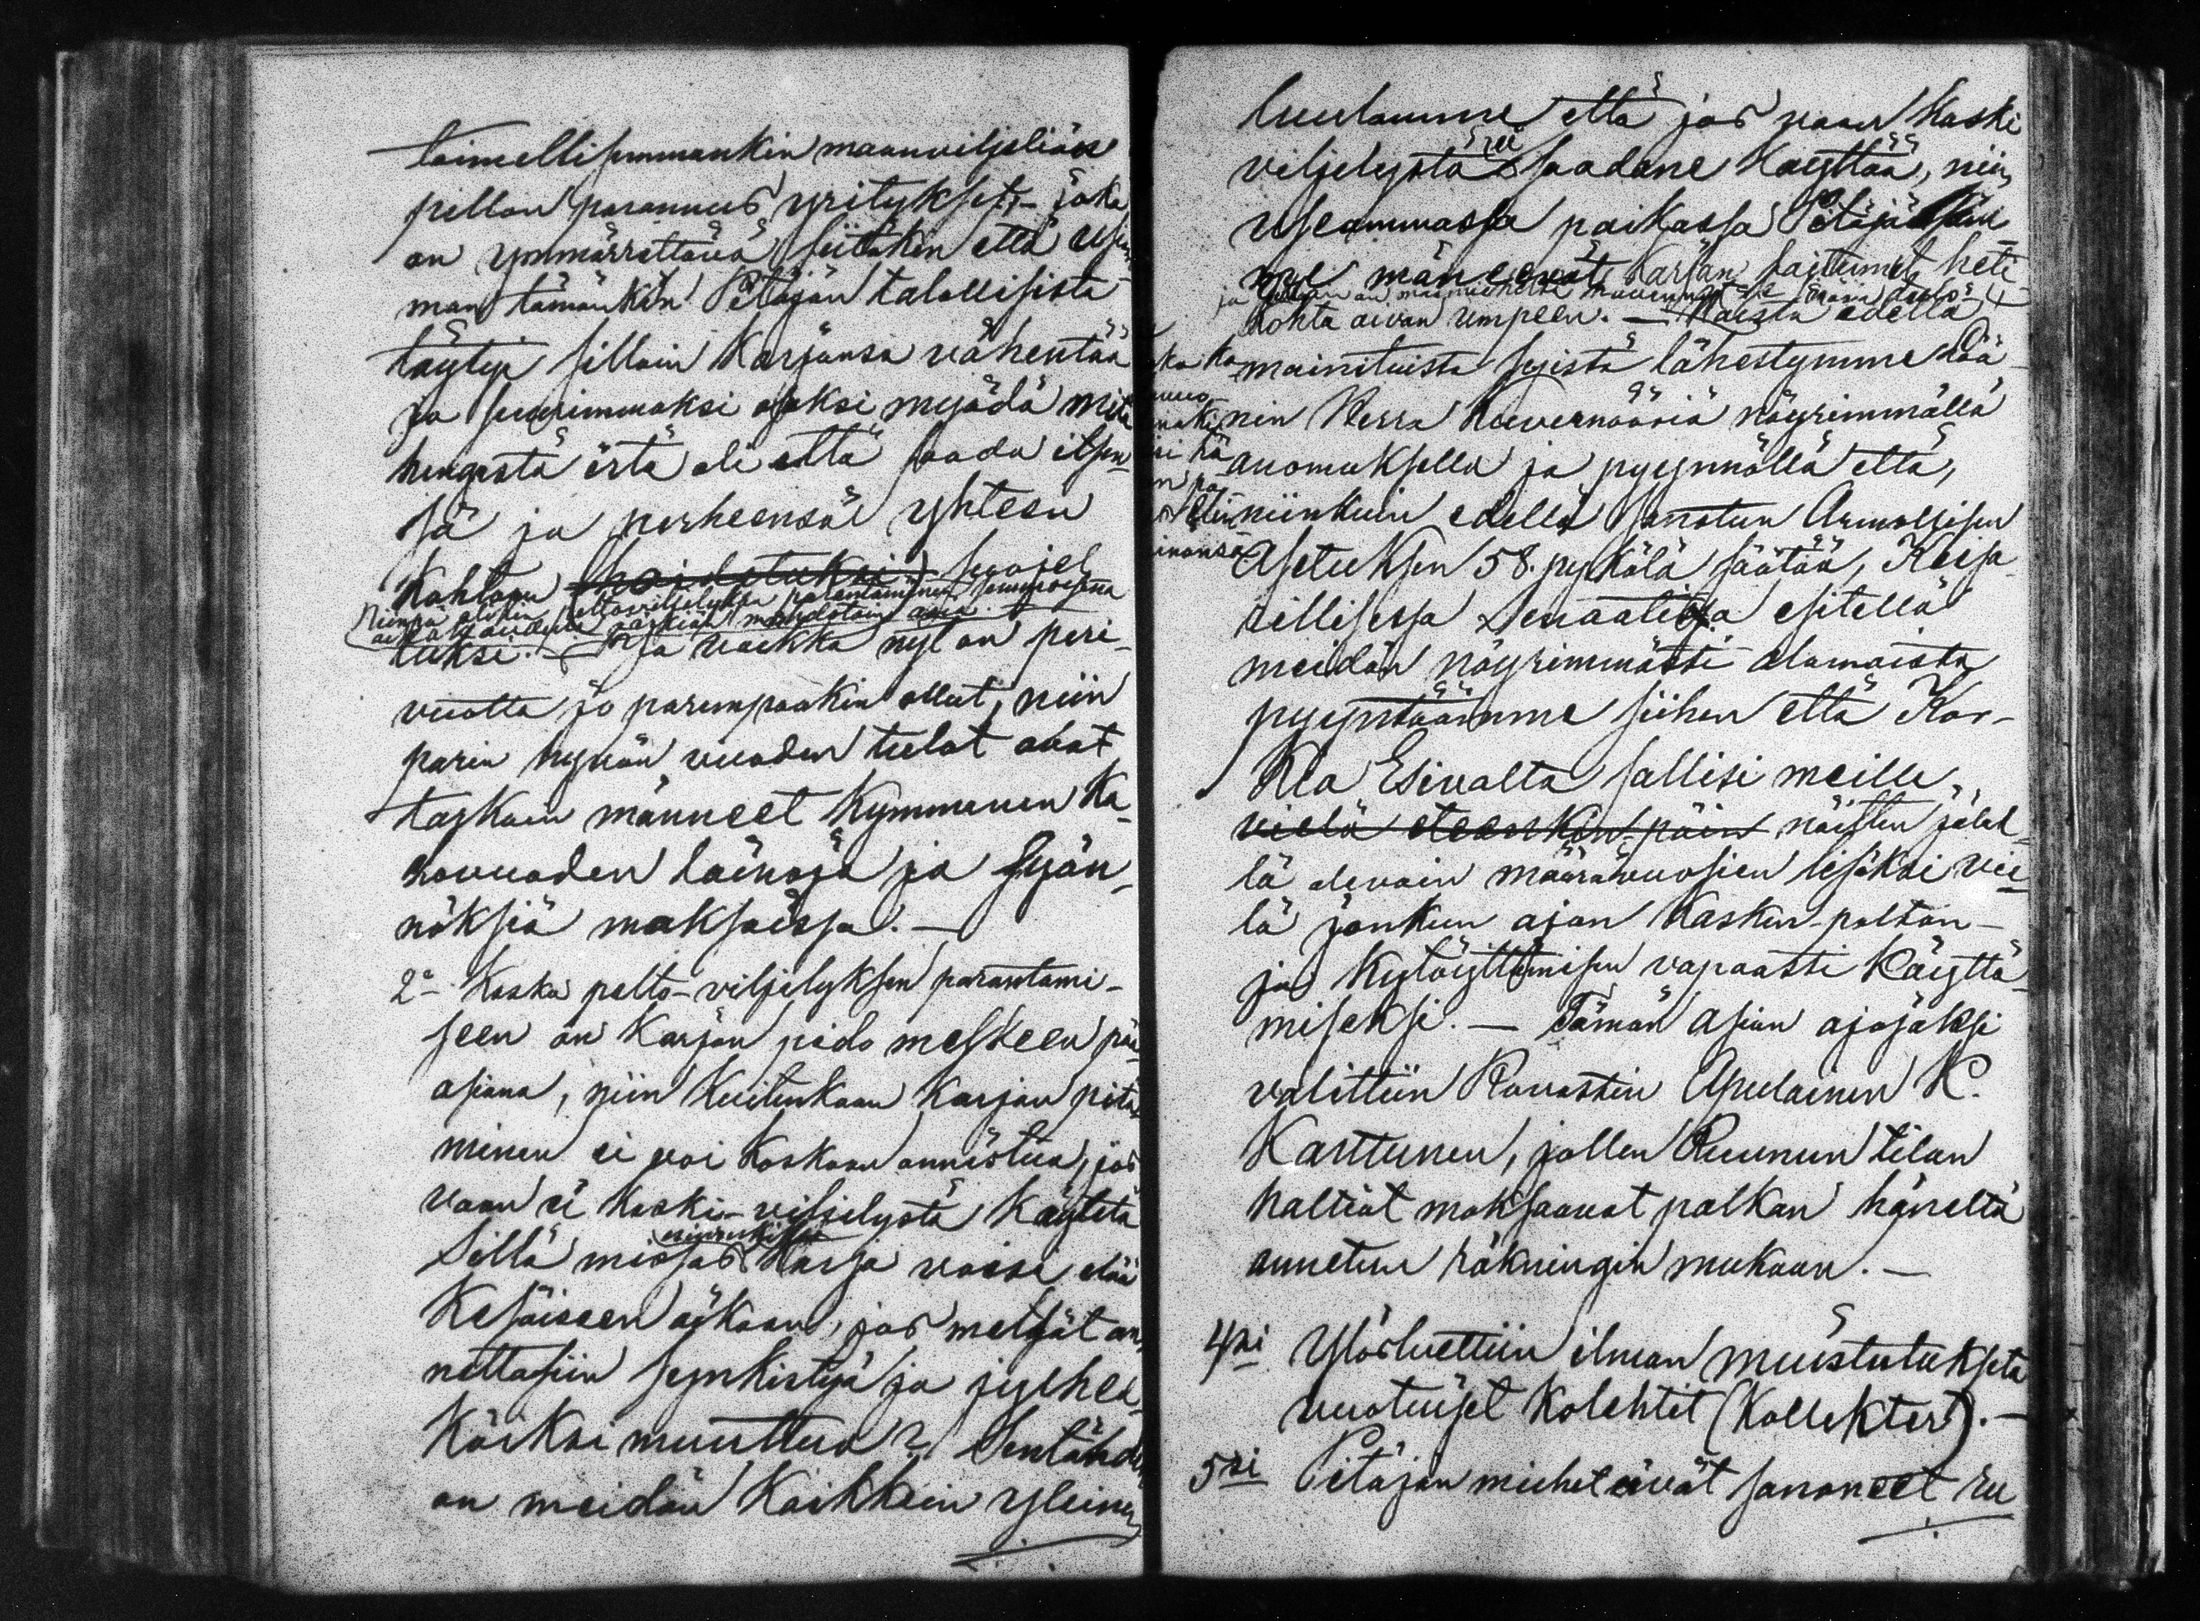 toimellisimmankin maanviljeliän
pellon parannus yritykset, – joka
on ymmärrettävä siitäkin että usim
man tämänkin Pitäjän talollisista
täytyi silloin Karjansa vähentää
ja suurimmaksi osaksi myödä mitä
hengestä örtä oli että saada itsen-
sä ja perheensä yhteen
Kohtaan (hoidetuksi) suojel
Niinpä olikin peltoviljelyksen parantaminen semmoisena
aikana varsin mahdotoin asia.
tuksi. – Ja vaikka nyt on pari-
vuotta jo parempaakin ollut, niin
parin hyvän vuoden tulot ovat
taskain männeet Kymmenen Ka-
tovuoden lainoja ja syän-
nöksiä maksaissa. –
2o Koska pelto-viljelyksen parantami-
seen on Karjan pido melkeen pää
asiana, niin Kuitenkaan Karjan pitä
minen ei voi Koskaan onnistua, jos
vaan ei Kaski-viljelystä Käytetä
Sillä missäs Karja voisi elää
Kesäiseen aikaan, jos metsät an-
nettasiin synkistyä ja jyle
köiksi muuttua? Sentähden
on meidän Kaikkein yleinen
luulomme että jos vaan Kaski
viljelystä ei saadane Käyttää, niin
useammassa paikassa Pitäjässäm
me mänevät Karjan laitumet heti
kohta aivan umpeen. – Näistä edellä
mainituista syistä lähestymme Lää
nin Herra Kuvernööriä nöyrimmällä
anomuksella ja pyynnöllä että,
niinkuin edellä sanotun Armollisen
Asetuksen 58. pykälä säätää, Keisa
rillisessa Senaatissa esitellä
meidän nöyrimmästi alamaista
pyyntöämme siihen että Kor-
kea Esivalta sallisi meille
vielä eteenkin päin näitten jälel
lä olevain määrävuosien lisäksi vie
lä jonkun ajan Kasken-polton-
ja Kytöyttämisen vapaasti Käyttä
miseksi. – Tämän asian ajajaksi
valittiin Rovastin Apulainen K.
Karttunen, jollen Ruunun tilan
haltiat maksaavat palkan häneltä
annetun räkningin mukaan. –
4ksi Ylösluettiin ilman muistutuksita
vuotuiset Kolehtit (Kollekter). –
5ksi Pitäjän miehet eivät sanoneet ru